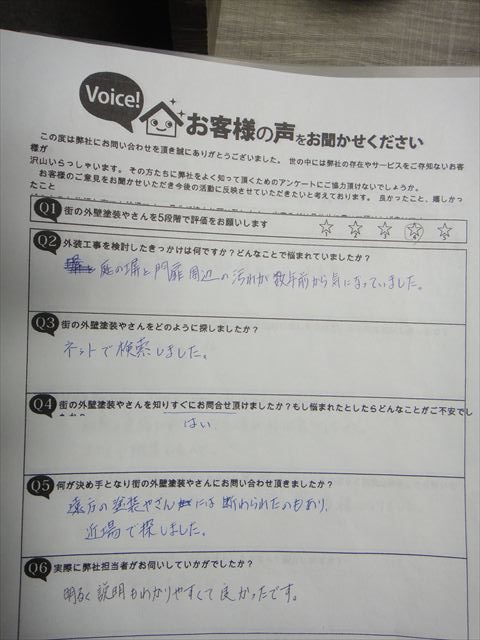 Voice!
お客様の声をお聞かせください
この度は弊社にお問い合わせを頂き誠にありがとうございました。 世の中には弊社の存在やサービスをご存知ないお客様が
沢山いらっしゃいます。その方たちに弊社をよく知って頂くためのアンケートにご協力頂けないでしょうか。
お客様のご意見をお聞かせいただき今後の活動に反映させていただきたいと考えております。 良かったこと、嬉しかったこと
Q1 街の外壁塗装やさんを5段階で評価をお願いします 1 2 3 4 5
Q2 外装工事を検討したきっかけは何ですか?どんなことで悩まれていましたか?
庭の塀と門扉周辺の汚れが数年前から気になっていました。
Q3 街の外壁塗装やさんをどのように探しましたか?
ネットで検索しました。
Q4 街の外壁塗装やさんを知りすぐにお問合せ頂けましたか?もし悩まれたとしたらどんなことがご不安でし
はい
Q5 何が決め手となり街の外壁塗装やさんにお問い合わせ頂きましたか?
遠方の塗装やさんには断わられたのもあり、
近場で探しました。
Q6 実際に弊社担当者がお伺いしていかがでしたか?
明るく説明もわかりやすくて良かったです。